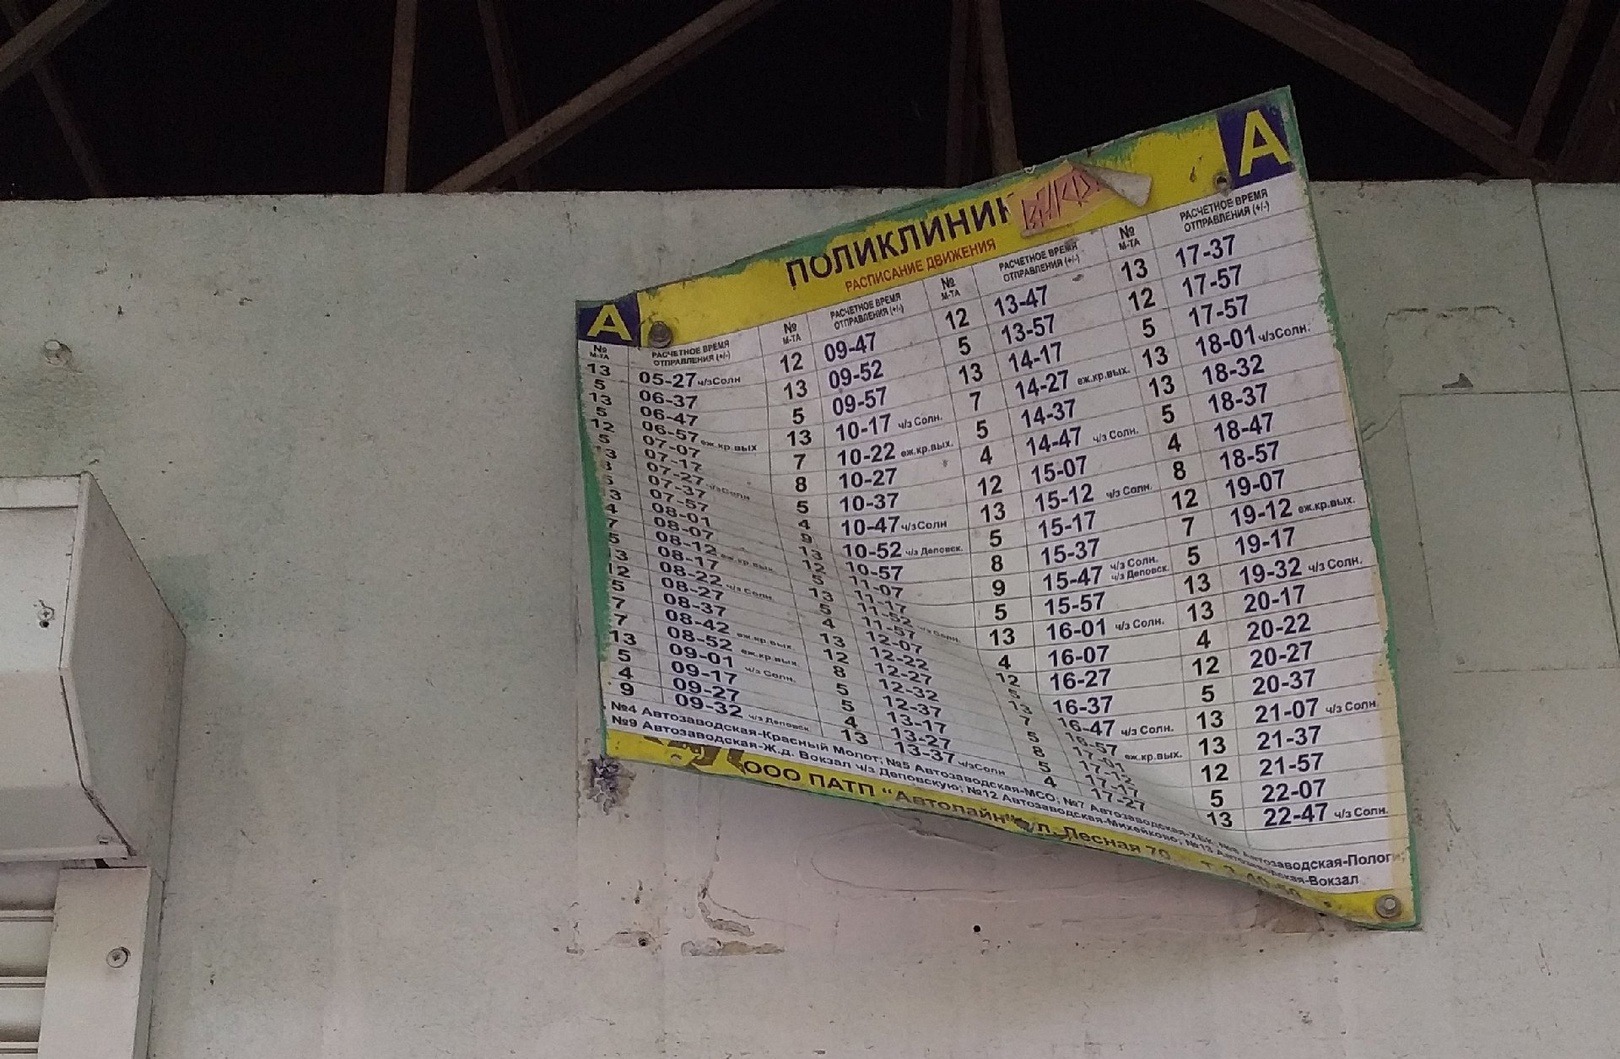 А ПОЛИКЛИНИК А
РАСПИСАНИЕ ДВИЖЕНИЯ
№ М-ТА РАСЧЕТНОЕ ВРЕМЯ ОТПРАВЛЕНИЯ (+/-)
13 05-27 ч/зСолн
5 06-37
13 06-47
5 06-57 еж.кр.вых
12 07-07
5 07-17
07-27 ч/зСолн
07-37
07-57
08-01
08-07
08-12 еж.кр.вых.
08-17
08-22 ч/з Солн.
08-27
08-37
7 08-42 еж.кр.вых.
08-52 еж.кр.вых.
13 09-01 ч/з Солн.
5 09-17
4 09-27
9 09-32 ч/з Деповск.
№ М-ТА РАСЧЕТНОЕ ВРЕМЯ ОТПРАВЛЕНИЯ (+/-)
12 09-47
13 09-52
5 09-57
13 10-17 ч/з Солн.
7 10-22 еж.кр.вых.
8 10-27
5 10-37
4 10-47 ч/зСолн
9 10-52 ч/з Деповск.
13 10-57
12 11-07
5 11-17
13 11-52 ч/з Солн.
5 11-57
4 12-07
13 12-22
12 12-27
8 12-32
5 12-37
5 13-17
4 13-27
13 13-37 ч/зСолн
№ М-ТА РАСЧЕТНОЕ ВРЕМЯ ОТПРАВЛЕНИЯ (+/-)
12 13-47
5 13-57
13 14-17
7 14-27 еж.кр.вых.
5 14-37
4 14-47 ч/з Солн.
12 15-07
13 15-12 ч/з Солн.
5 15-17
8 15-37
9 15-47 ч/з Солн. ч/з Деповск.
5 15-57
13 16-01 ч/з Солн.
4 16-07
12 16-27
5 16-37
13 16-47 ч/з Солн.
7 16-57 еж.кр.вых.
5 17-01
8 17-12
5 17-17
4 17-27
№ М-ТА РАСЧЕТНОЕ ВРЕМЯ ОТПРАВЛЕНИЯ (+/-)
13 17-37
12 17-57
5 17-57
13 18-01 ч/зСолн.
13 18-32
5 18-37
4 18-47
8 18-57
12 19-07
7 19-12 еж.кр.вых.
5 19-17
13 19-32 ч/з Солн.
13 20-17
4 20-22
12 20-27
5 20-37
13 21-07 ч/з Солн.
13 21-37
12 21-57
5 22-07
13 22-47 ч/з Солн.
№4 Автозаводская-Красный Молот; №5 Автозаводская-МСО; №7 Автозаводская-ХБК; №8 Автозаводская-Полог
№9 Автозаводская-Ж.д. Вокзал ч/з Деповскую; №12 Автозаводская-Михейково; №13 Автозаводская-Вокзал
ООО ПАТП "Автолайн" ул. Лесная 70